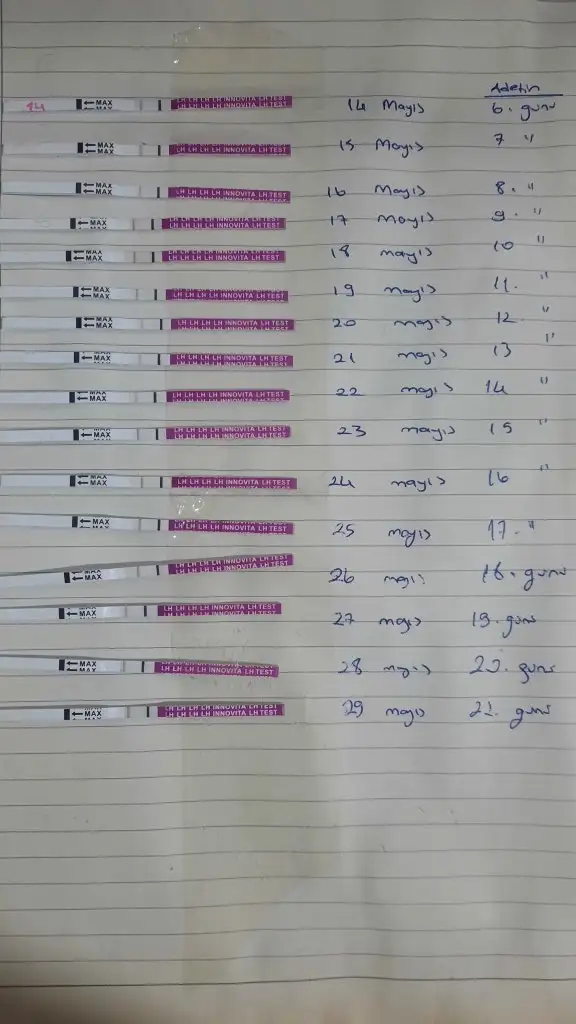 Adetin
14 ←MAX LH LH LH LH INNOVITA LH TEST 14 Mayıs 6. günü
←MAX LH LH LH LH INNOVITA LH TEST 15 Mayıs 7 "
←MAX LH LH LH LH INNOVITA LH TEST 16 Mayıs 8. "
←MAX LH LH LH LH INNOVITA LH TEST 17 Mayıs 9. "
←MAX LH LH LH LH INNOVITA LH TEST 18 mayıs 10 "
←MAX LH LH LH LH INNOVITA LH TEST 19 mayıs 11. "
←MAX LH LH LH LH INNOVITA LH TEST 20 mayıs 12. "
←MAX LH LH LH LH INNOVITA LH TEST 21 mayıs 13 "
←MAX LH LH LH LH INNOVITA LH TEST 22 mayıs 14 "
←MAX LH LH LH LH INNOVITA LH TEST 23 mayıs 15 "
←MAX LH LH LH LH INNOVITA LH TEST 24 mayıs 16 "
←MAX LH LH LH LH INNOVITA LH TEST 25 mayıs 17. "
←MAX LH LH LH LH INNOVITA LH TEST 26 mayıs 18. günü
←MAX LH LH LH LH INNOVITA LH TEST 27 mayıs 19. günü
←MAX LH LH LH LH INNOVITA LH TEST 28 mayıs 20. günü
←MAX LH LH LH LH INNOVITA LH TEST 29 mayıs 21. günü